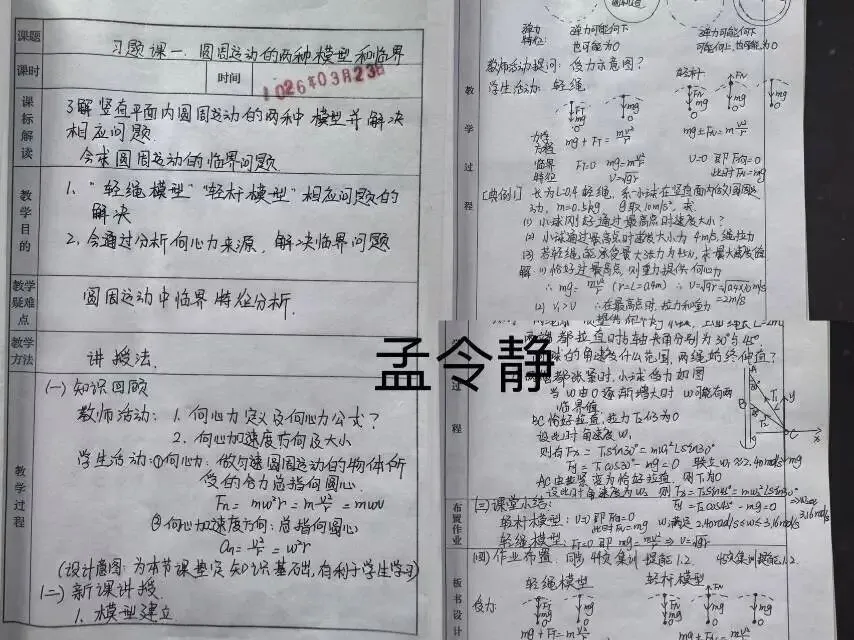 课题
习题课一、圆周运动的两种模型和临界
课时
时间
2026年03月23日
课标解读
了解竖直平面内圆周运动的两种模型并解决
相应问题.
会求圆周运动的临界问题.
教学目的
1、"轻绳模型""轻杆模型"相应问题的
解决
2、会通过分析向心力来源,解决临界问题
教学疑难点
圆周运动中临界特征分析.
教学方法
讲授法.
教学过程
(一) 知识回顾
教师活动: 1. 向心力定义及向心力公式?
2. 向心加速度方向及大小
学生活动:①向心力:做匀速圆周运动的物体所
受的合力总指向圆心.
Fn = mω²r = m v²/r = mωv
②向心加速度方向:总指向圆心
an = v²/r = ω²r
(设计意图:为本节课垫定知识基础,有利于学生学习)
(二) 新课讲授
1. 模型建立
弹力特征:
弹力可能向下
也可能为0
弹力可能向下
可能向上,也可能为0
教师活动提问:受力示意图?
学生活动:轻绳
轻杆
教学过程
力学方程
mg + FT = m v²/r
mg ± FN = m v²/r
临界特征
FT=0 mg = m v²/r
v=√gr
v=0 即F向=0
此时FN=mg
[典例1] 长为L=0.4轻绳,系一小球在竖直面内做圆周运
动, m=0.5kg g取10m/s², 求
(1) 小球刚好通过最高点时速度大小?
(2) 小球通过最高点时速度大小为4m/s,绳拉力
(3) 若轻绳能承受最大张力为45N,求最大速度值
解:(1)恰好过最高点,则重力提供向心力
∴ mg = m v²/r (r=L=0.4m) ∴ v=√gr=√0.4×10 m/s
=2m/s
(2) v₁>v ∴在最高点时,拉力和重力
两绳都拉直时与轴夹角分别为30°与45°
球的角速度什么范围,两绳始终伸直?
都张紧时,小球受力如图
当ω由0逐渐增大时 ω可能有两
临界值.
BC恰好拉直,拉力T₂仍为0
设此时角速度ω₁
则有Fx = T₁sin30° = mω₁²Lsin30°
Fy = T₁cos30° - mg = 0 联立ω₁≈2.40rad/s
AC由拉紧变为恰好拉直,则T₁为0
设此时角速度为ω₂ 则Fx=T₂sin45°=mω₂²Lsin30°
Fy = T₂cos45° - mg = 0
3.16rad/s
(三)课堂小结:
轻杆模型:v=0即F向=0
此时FN=mg
ω满足 2.40rad/s≤ω≤3.16rad/s
轻绳模型:FT=0即mg=m v²/r ⇒ v=√gr
布置作业
(四)作业布置
板书设计
轻绳模型 轻杆模型
受力:
mg+FT=m v²/r
孟令静